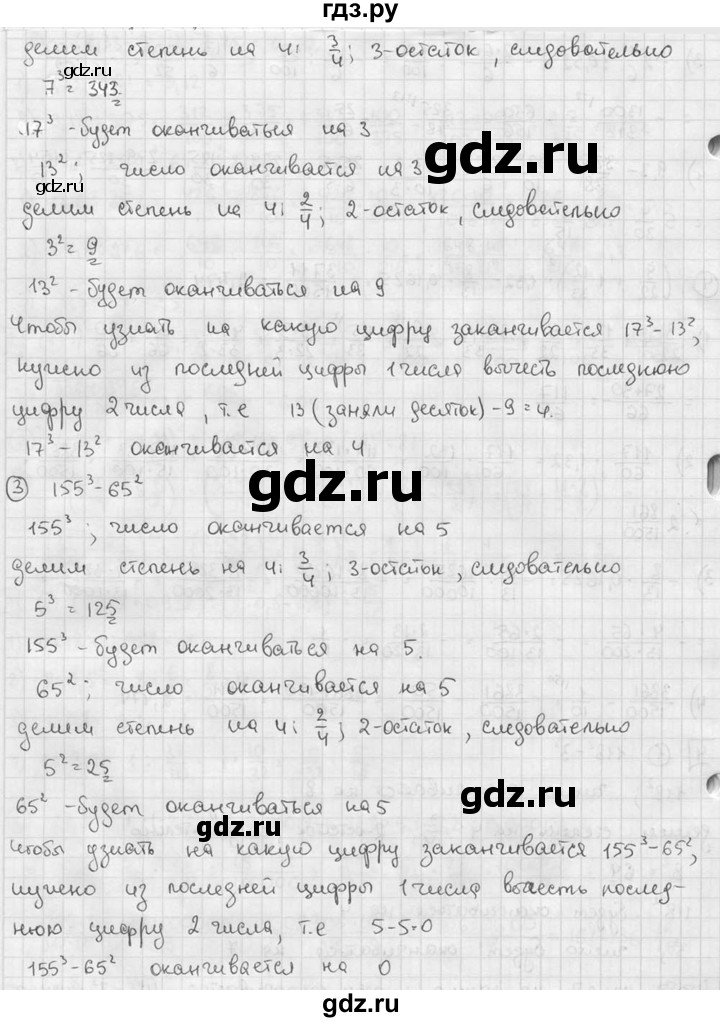 гдз.ру
делим степень на 4: 3/4; 3-остаток, следовательно
7³ = 343.
gdz.ru
17³ - будет оканчиваться на 3
gdz.ru
13²; число оканчивается на 3
gdz.ru
делим степень на 4: 2/4; 2-остаток, следовательно
3² = 9
gdz.ru
13² - будет оканчиваться на 9
Чтобы узнать на какую цифру заканчивается 17³-13²,
нужно из последней цифры 1 числа вычесть последнюю
цифру 2 числа, т.е 13 (заняли десяток) - 9 = 4.
17³-13² оканчивается на 4
gdz.ru
③ 155³-65²
gdz.ru
155³; число оканчивается на 5
делим степень на 4: 3/4; 3-остаток, следовательно
5³ = 125
gdz.ru
155³ - будет оканчиваться на 5.
65²; число оканчивается на 5
gdz.ru
делим степень на 4: 2/4; 2-остаток, следовательно
5² = 25
gdz.ru
65² - будет оканчиваться на 5
gdz.ru
Чтобы узнать на какую цифру заканчивается 155³-65²,
нужно из последней цифры 1 числа вычесть послед-
нюю цифру 2 числа, т.е 5-5=0
gdz.ru
155³-65² оканчивается на 0
gdz.ru